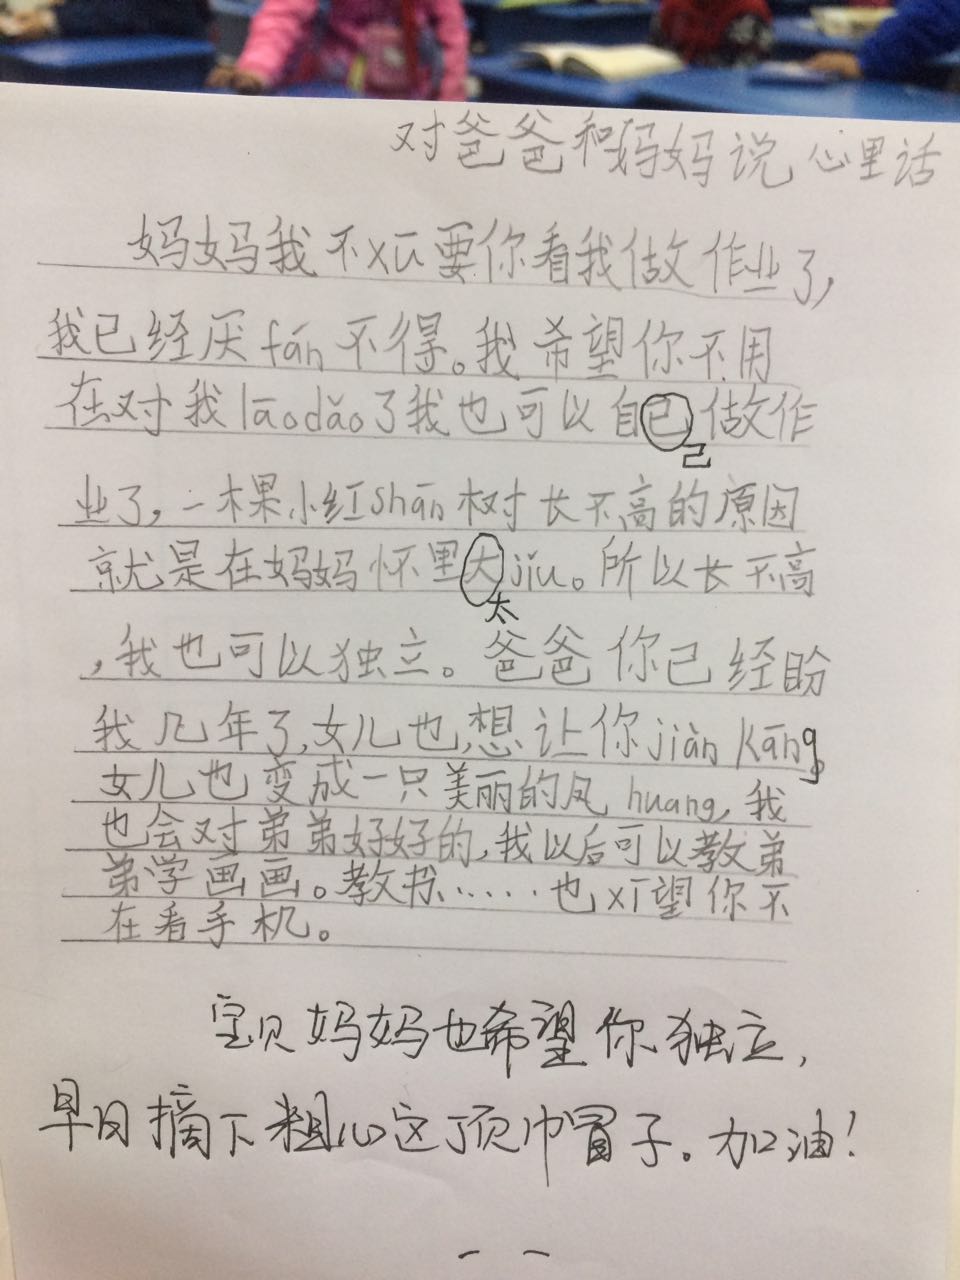 对爸爸和妈妈说心里话
妈妈我不xū要你看我做作业了,
我已经厌fán不得。我希望你不用
在对我lāodǎo了我也可以自已做作
己
业了,一棵小红shān树长不高的原因
就是在妈妈怀里大jiǔ。所以长不高
太
,我也可以独立。爸爸你已经盼
我几年了,女儿也,想让你jiàn kāng,
女儿也变成一只美丽的凤huang,我
也会对弟弟好好的,我以后可以教弟
弟学画画。教书……也xī望你不
在看手机。
宝贝妈妈也希望你独立,
早日摘下粗心这顶巾冒子。加油!